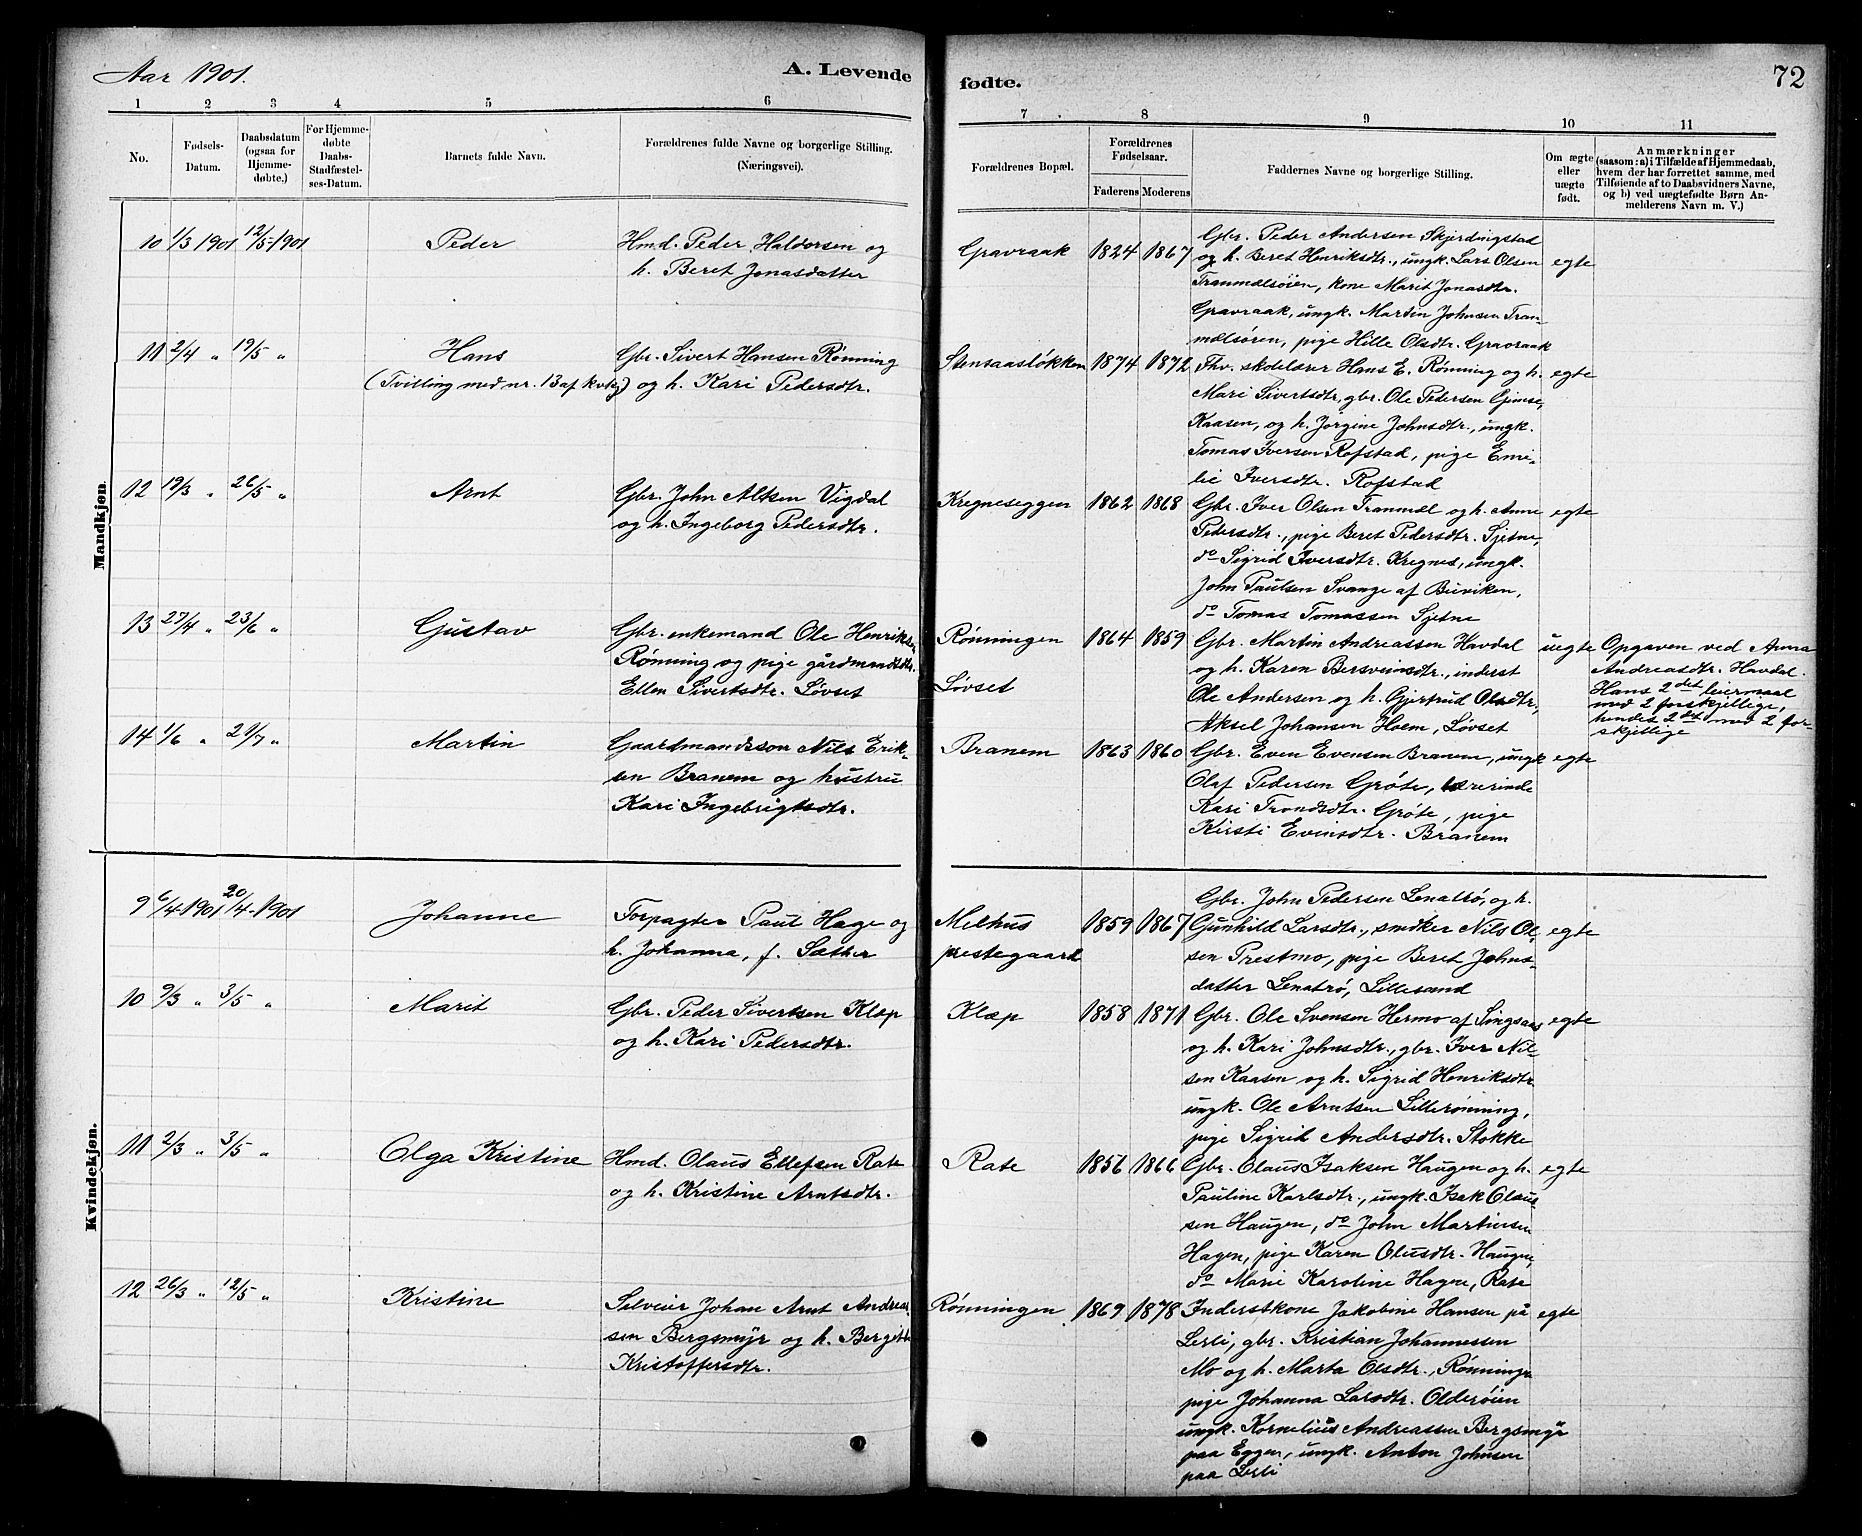 Aar 1901.
A. Levende
fødte.
72
1 2 3 4 5 6 7 8 9 10 11
No.
Fødsels-
Datum.
Daabsdatum
(ogsaa for
Hjemme-
døbte.)
For Hjemme-
døbte
Daabs-
Stadfæstel-
ses-Datum.
Barnets fulde Navn.
Forældrenes fulde Navne og borgerlige Stilling.
(Næringsvei).
Forældrenes Bopæl.
Forældrenes
Fødselsaar.
Faderens
Moderens
Faddernes Navne og borgerlige Stilling.
Om ægte
eller
uægte
født.
Anmærkninger
(saasom: a) i Tilfælde af Hjemmedaab,
hvem der har forrettet samme, med
Tilføiende af to Daabsvidners Navne,
og b) ved uægtefødte Børn An-
melderens Navn m. V.)
Mandkjøn.
10 1/3 1901 12/5-1901 Peder
Hmd. Peder Haldorsen og
h. Beret Jonasdatter
Gravraak 1824 1867
Gbr. Peder Andersen Skjerdingstad
og h. Beret Henriksdtr., ungk. Lars Olsen
Tranmælsøien, kone Marit Jonasdtr.
Gravraak, ungk. Martin Johnsen Tran-
mælsøren, pige Hille Olsdtr. Gravraak
egte
11 2/4 " 19/5 " Hans
(Tvilling med nr. 13 af kvkj)
Gbr. Sivert Hansen Rønning
og h. Kari Pedersdtr.
Stensaasløkken 1874 1872
Fhv. skolelærer Hans E. Rønning og h.
Mari Sivertsdtr, gbr. Ole Pedersen Gimse,
Kaasen, og h. Jørgine Johnsdtr., ungk.
Tomas Iversen Rofstad, pige Emi-
lie Iversdtr. Rofstad
egte
12 19/3 " 26/5 " Arnt
Gbr. John Altsen Vigdal
og h. Ingeborg Pedersdtr.
Kregneseggen 1862 1868
Gbr. Iver Olsen Tranmæl og h. Anne
Pedersdtr., pige Beret Pedersdtr. Sjetne,
do Sigrid Iversdtr. Kregnes, ungk.
John Paulsen Svange af Buviken,
do Tomas Tomassen Sjetne
egte
13 27/4 " 23/6 " Gustav
Gbr. enkemand Ole Henriksen
Rønning og pige gårdmandsdtr.
Ellen Sivertsdtr. Løvset
Rønningen 1864 1859
Løvset
Gbr. Martin Andreassen Havdal
og h. Karen Bersveinsdtr., inderst
Ole Andersen og h. Gjertrud Olsdtr,
Aksel Johansen Hoem, Løvset
uegte
Opgaven ved Anna
Andreasdtr. Havdal.
Hans 2det leiermaal
med 2 forskjellige,
hendes 2det med 2 for-
skjellige
14 1/6 " 21/7 " Martin
Gaardmandssøn Nils Erik-
sen Branem og hustru
Kari Ingebrigtsdtr.
Branem 1863 1860
Gbr. Even Evensen Branem, ungk
Olaf Pedersen Grøte, lærerinde
Kari Trondsdtr. Grøte, pige
Kirsti Evinsdtr. Branem
egte
Kvindekjøn.
9 6/4-1901 20/4-1901 Johanne
Forpagter Paul Hage og
h. Johanna, f. Sæther
Melhus 1859 1867
prestegaard
Gbr. John Pedersen Lenatrø, og h.
Gunhild Larsdtr., snedker Nils Ol-
sen Prestmo, pige Beret Johns-
datter Lenatrø, Lillesand
egte
10 9/3 " 3/5 " Marit
Gbr. Peder Sivertsen Klæp
og h. Kari Pedersdtr.
Klæp 1858 1871
Gbr. Ole Svensen Hermo af Singsaas
og h. Kari Johnsdtr., gbr. Iver Nil-
sen Kaasen og h. Sigrid Henriksdtr
ungk. Ole Arntsen Lillerønning,
pige Sigrid Andersdtr. Stokke
egte
11 2/3 " 3/5 " Olga Kristine
Hmd. Olaus Ellefsen Rate
og h. Kristine Arntsdtr.
Rate 1856 1866
Gbr. Olaus Isaksen Haugen og h.
Pauline Karlsdtr., ungk. Isak Olaus-
sen Haugen, do John Martinsen
Hagen, pige Karen Olusdtr. Haugen,
do Marie Karoline Hagen, Rate
egte
12 26/3 " 12/5 " Kristine
Selveier Johan Arnt Andreas-
sen Bergsmyr og h. Bergitte
Kristoffersdtr.
Rønningen 1869 1878
Inderstkone Jakobine Hansen på
Lerli, gbr. Kristian Johannessen
Mo og h. Marta Olsdtr., Rønninge
pige Johanna Larsdtr. Olderøien
ungk. Kornelius Andreassen Bergsmyr
paa Eggen, ungk. Anton Johnsen
paa Lerli
egte